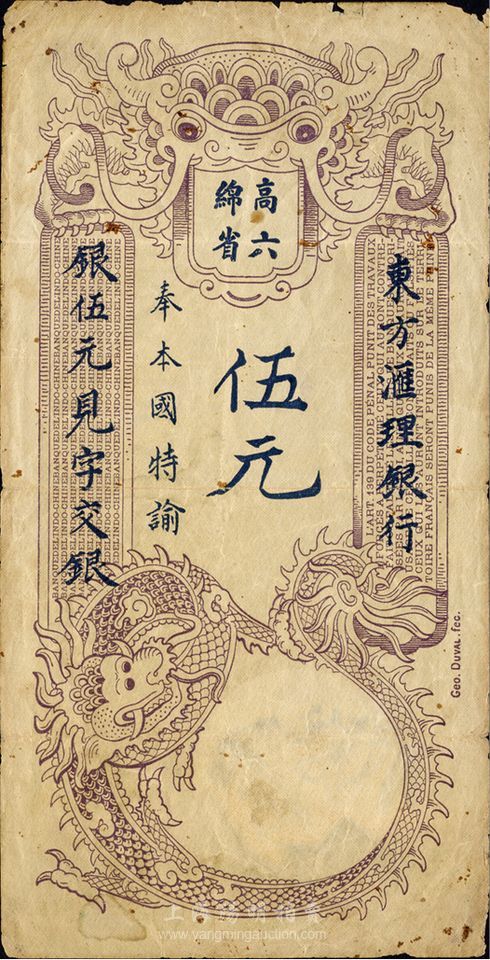 高六
綿省
東方滙理銀行
伍元
奉本國特諭
銀伍元見字交銀
L'ART. 139 DU CODE PÉNAL PUNIT DES TRAVAUX
TOIRE FRANÇAIS SERONT PUNIS DE LA MÊME PEINE
BANQUE DE L'INDO-CHINE
Geo. Duval. fec.
上海陽明拍賣
www.yangmingauction.com